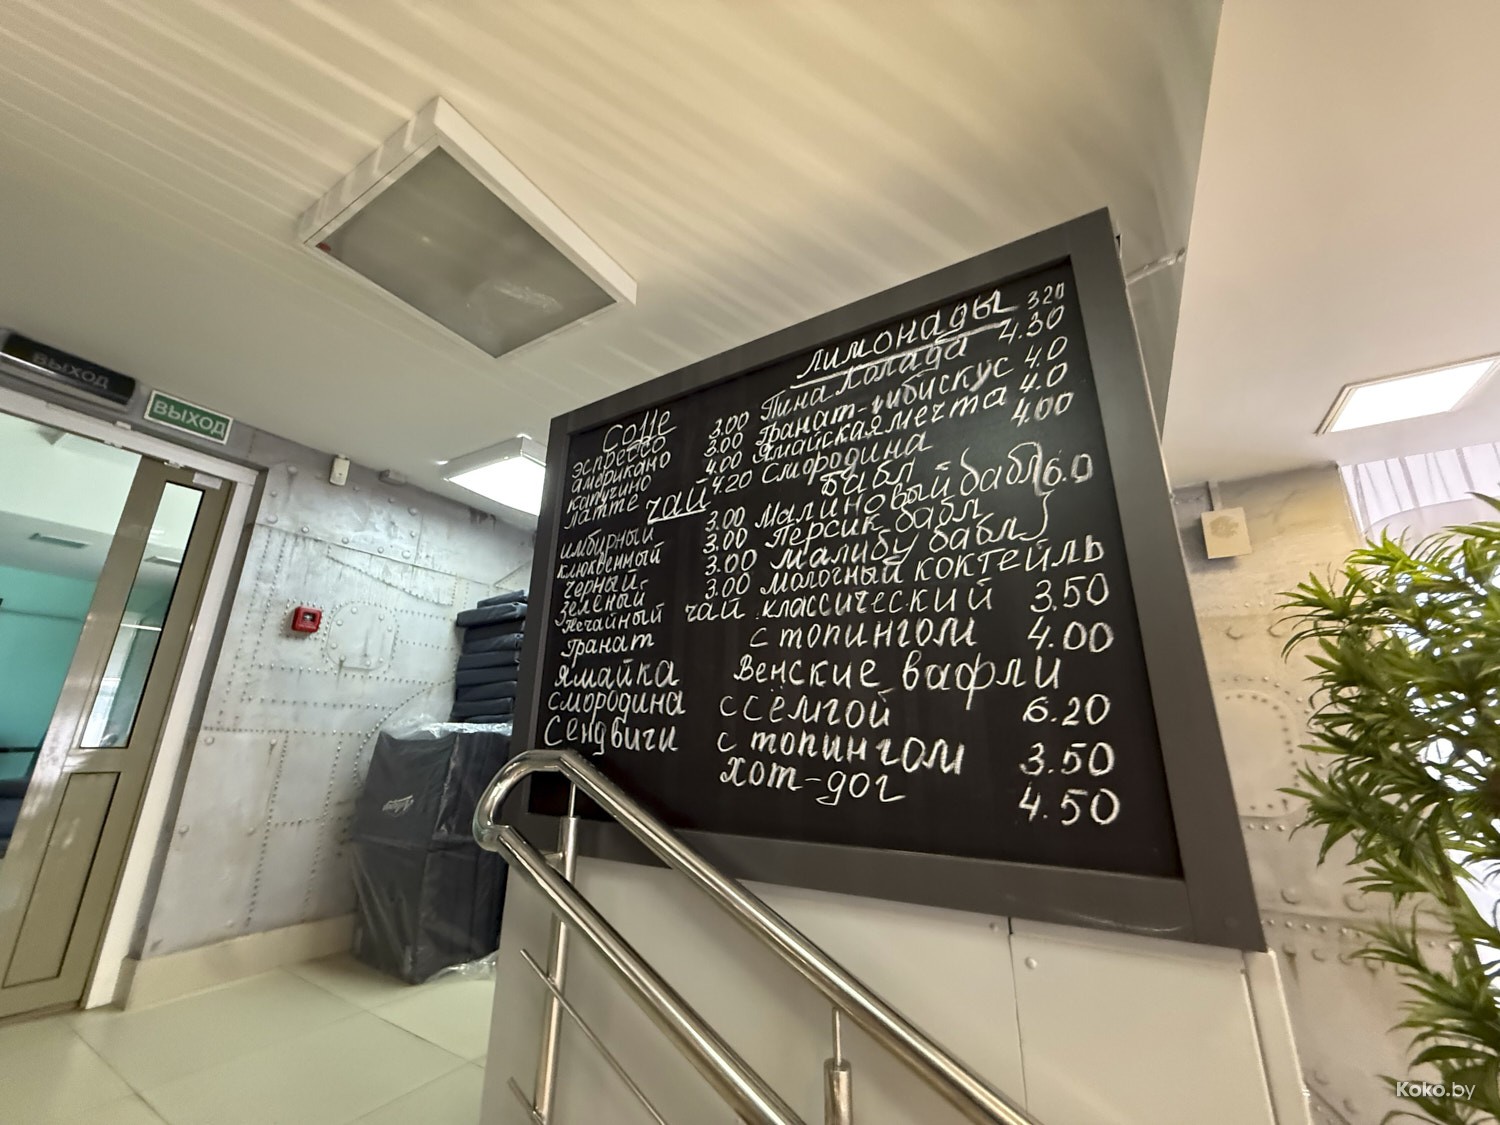 ВЫХОД
ВЫХОД
Coffe
эспрессо 3.00
американо 3.00
капучино 4.00
латте 4.20
чай
имбирный 3.00
клюквенный 3.00
черный 3.00
зеленый 3.00
Нечайный чай
Гранат
Ямайка
Смородина
Сендвичи
Лимонады 3.20
Пина Колада 4.30
Гранат-гибискус 4.0
Ямайская мечта 4.0
Смородина 4.00
Бабл
Малиновый бабл 6.0
Персик бабл
Малибу бабл
Молочный коктейль
классический 3.50
с топингом 4.00
Венские вафли
с сёмгой 6.20
с топингом 3.50
Хот-дог 4.50
Koko.by